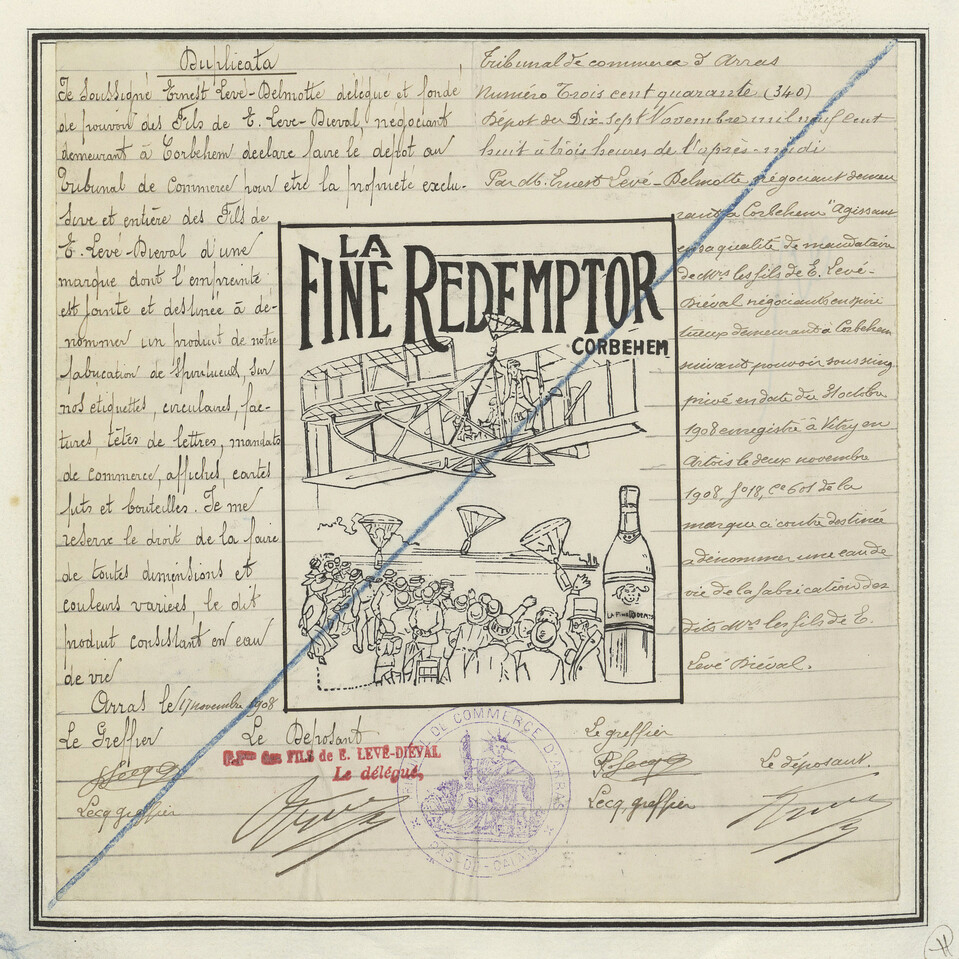 Duplicata
Je soussigné Ernest Levé-Delmotte délégué et fondé
de pouvoir des Fils de E. Levé-Dieval, négociant
demeurant à Corbehem declare faire le depot au
Tribunal de Commerce pour etre la propriété exclu-
sive et entière des Fils de
E. Levé-Dieval d'une
marque dont l'empreinte
est jointe et destinée à dé-
nommer un produit de notre
fabrication de Spiritueux, sur
nos etiquettes, circulaires, fac-
tures, têtes de lettres, mandats
de commerce, affiches, cartes
futs et bouteilles. Je me
reserve le droit de la faire
de toutes dimensions et
couleurs variées, le dit
produit consistant en eau
de vie
Arras le 17 novembre 1908
Le Greffier Le Deposant
Cion des FILS de E. LEVÉ-DIÉVAL
Le délégué,
Lecq greffier
LA
FINE REDEMPTOR
CORBEHEM
LA FINE REDEMPTOR
Tribunal de commerce d'Arras
Numéro Trois cent quarante (340)
Dépot du Dix-Sept Novembre mil neuf cent
huit à trois heures de l'après-midi
Par M. Ernest Levé-Delmotte négociant demeu
rant à Corbehem "Agissant
en sa qualité de mandataire
de Mrs les fils de E. Levé-
Diéval négociants en spiri
tueux demeurant à Corbehem
suivant pouvoir sous seing
privé en date du 31 octobre
1908 enregistré à Vitry en
Artois le deux novembre
1908, fo 18, Ce 601 de la
marque ci contre destinée
a dénommer une eau de
vie de la fabrication des
dits Mrs les fils de E.
Levé Diéval.
Le greffier
Le déposant.
Lecq greffier
TRIBUNAL DE COMMERCE D'ARRAS
PAS-DE-CALAIS